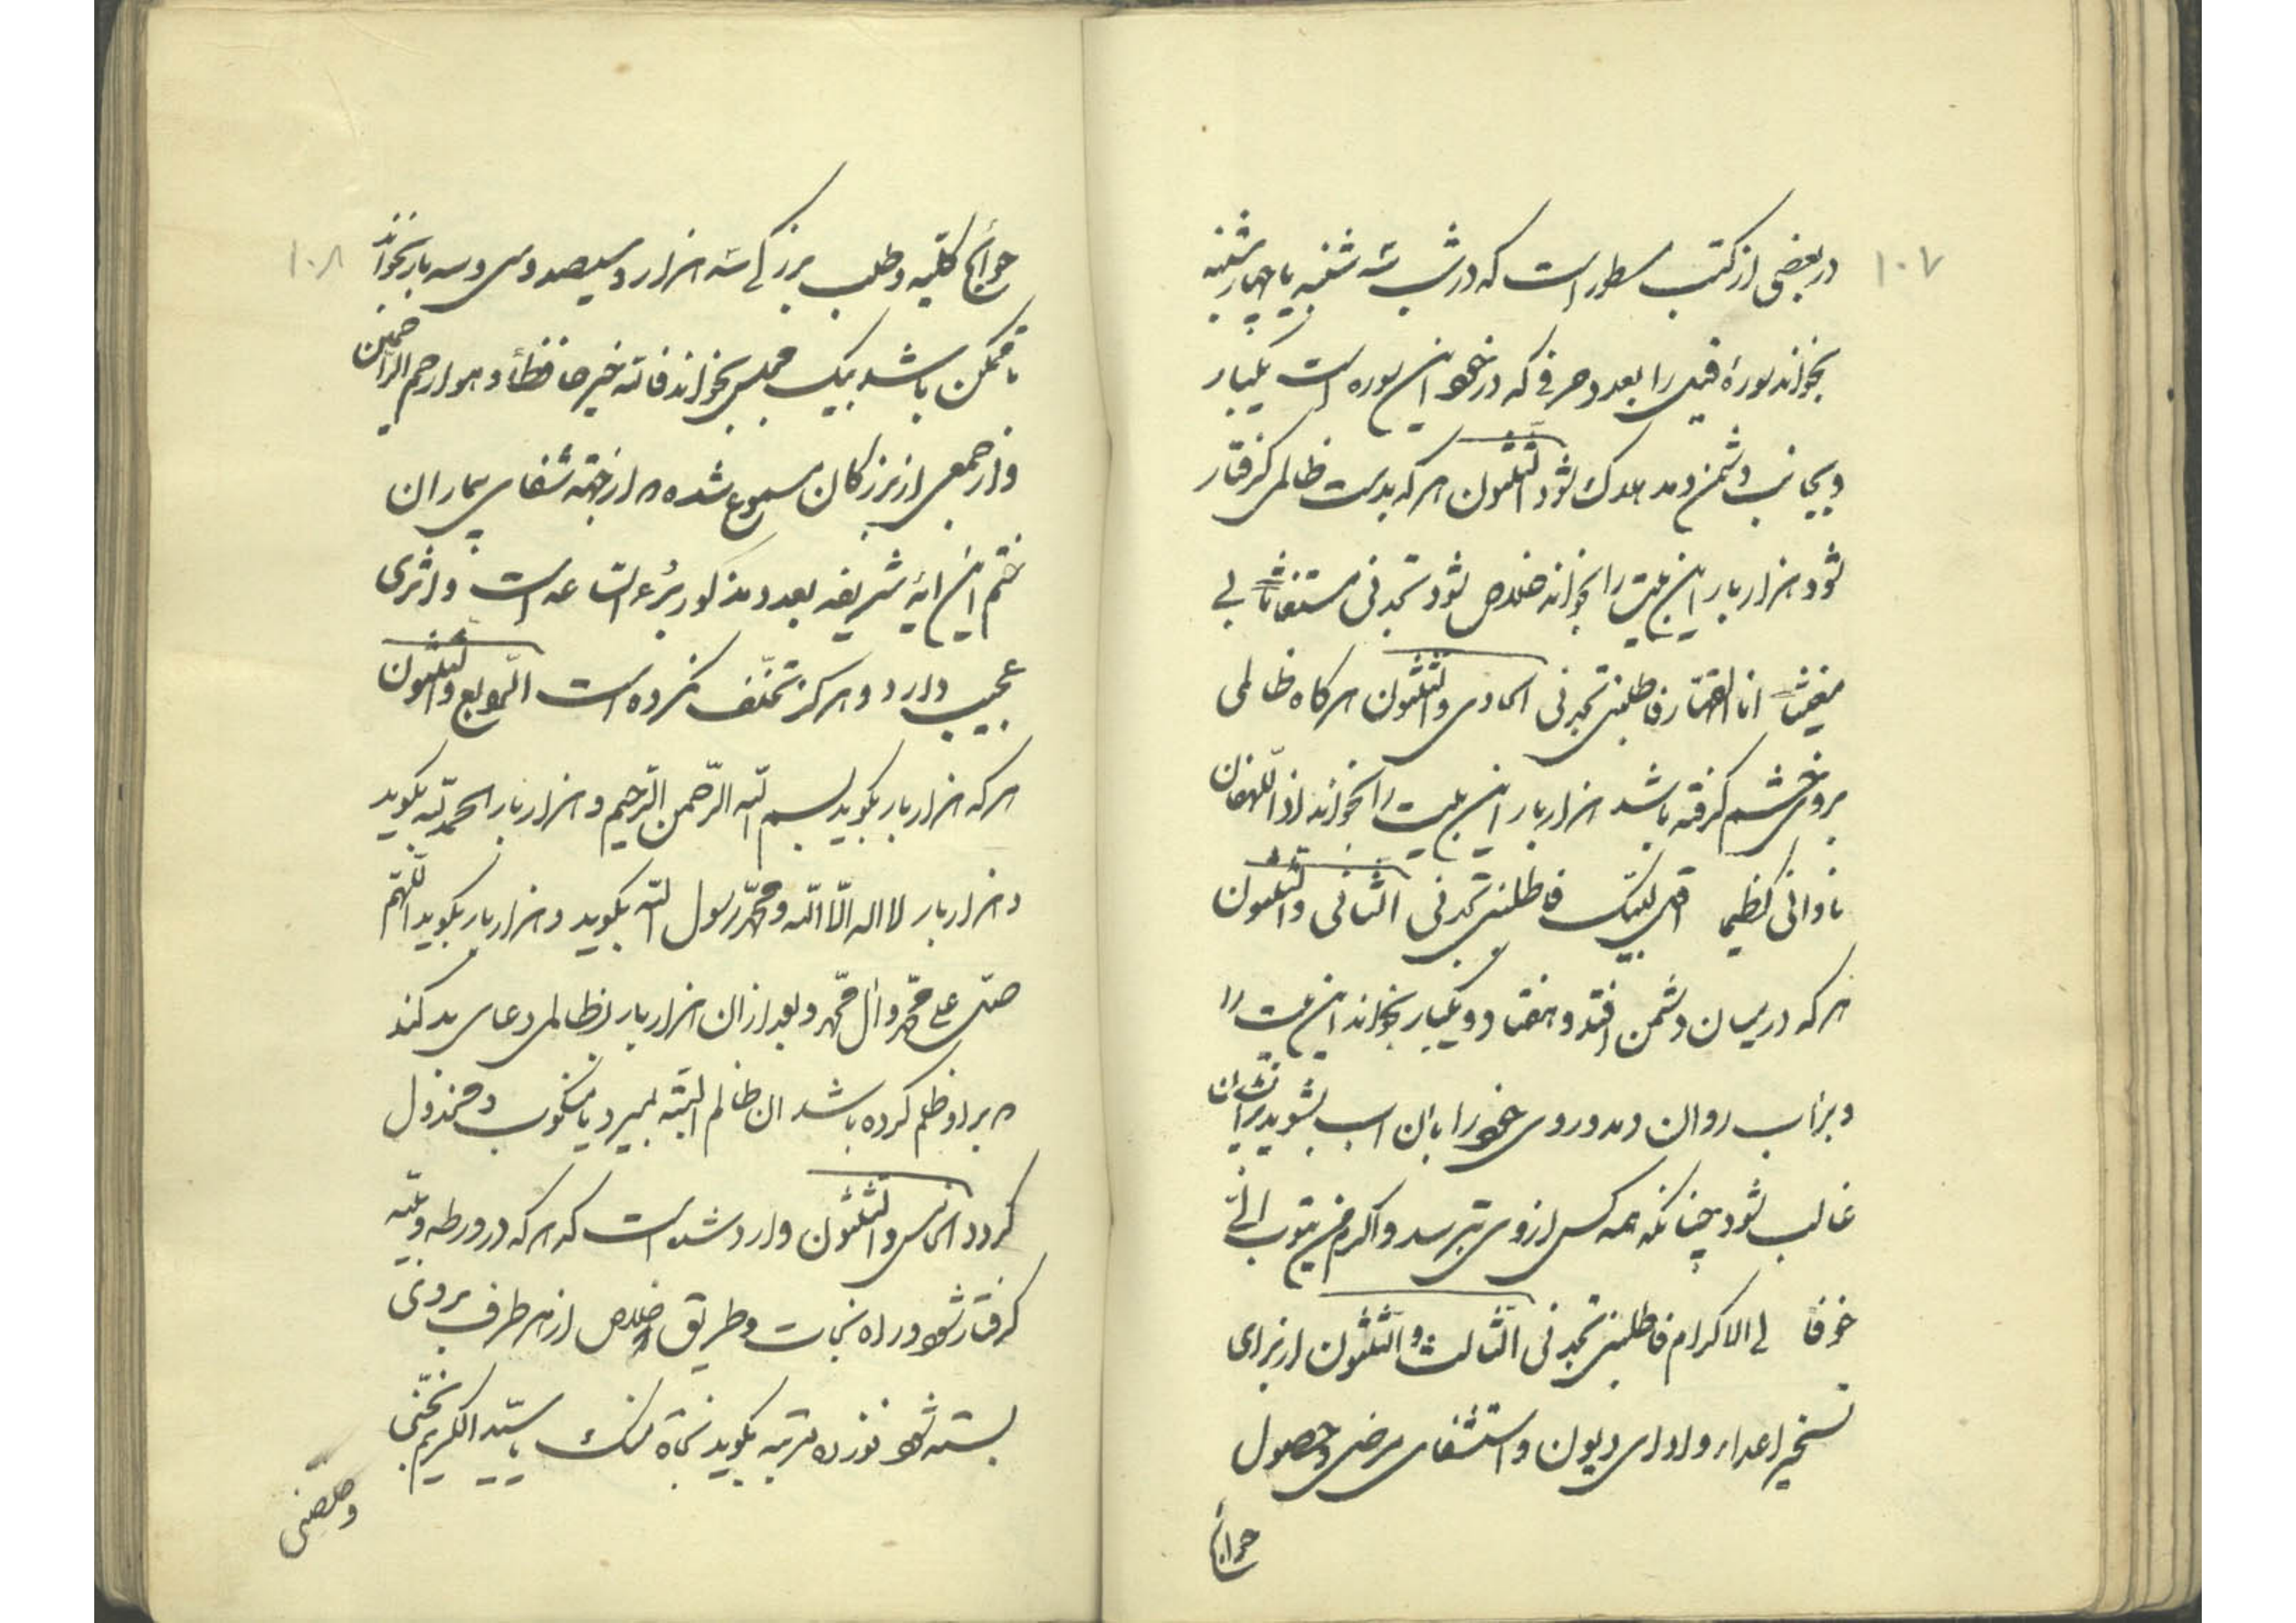 ۱۰۷
در بعضی از کتب مسطور است که در شب سه شنبه یا چهارشنبه
بخواند سورهٔ فیل را بعدد حرفی که در خود این سوره است یکبار
و بجانب دشمن دمد هلاک شود الثلثون هر که بدست ظالمی گرفتار
شود هزار بار این بیت را بخواند خلاص شود تجدنی مستغاثا لی
مغیثا انا القهار فاطلبنی تجدنی الحادی والثلثون هرگاه ظالمی
بروی خشم گرفته باشد هزار بار این بیت را بخواند اذا اللهفان
نادانی کظیما اقل لبیک فاطلبنی تجدنی الثانی والثلثون
هر که در میان دشمن افتد و هفتاد و یکبار بخواند این بیت را
و بر آب روان دمد و روی خود را بان اب بشوید بر ایشان
غالب شود چنانکه همه کس از وی بترسد و اکرم من یتوب الی
خوفا لی الاکرام فاطلبنی تجدنی الثالث والثلثون از برای
تسخیر اعداء و ادای دیون و استشفای مرضی و حصول
حوائج
۱۰۸
حوائج کلیه و طلب بزرگی سه هزار و سیصد و سی و سه بار بخواند
تا ممکن باشد بیک مجلس بخواند فالله خیر حافظا و هو ارحم الراحمین
و از جمعی از بزرگان مسموع شده که از جهة شفای بیماران
ختم این ایهٔ شریفه بعدد مذکور برء الساعه است و اثری
عجیب دارد و هرگز تخلف نکرده است الرابع والثلثون
هر که هزار بار بگوید بسم الله الرحمن الرحیم و هزار بار الحمد لله بگوید
و هزار بار لا اله الّا الله و محمّد رسول الله بگوید و هزار بار بگوید اللهم
صلّ علی محمّد و ال محمّد و بعد از ان هزار بار بر ظالمی دعای بد کند
که بر او ظلم کرده باشد ان ظالم البته بمیرد یا منکوب و مخذول
گردد الخامس والثلثون وارد شده است که هر که در ورطه و بلیّه
گرفتار شود و راه نجات و طریق خلاص از هر طرف بروی
بسته شود نوزده مرتبه بگوید نجاة منک یا سیّد الکریم نجّنی
و خلصنی